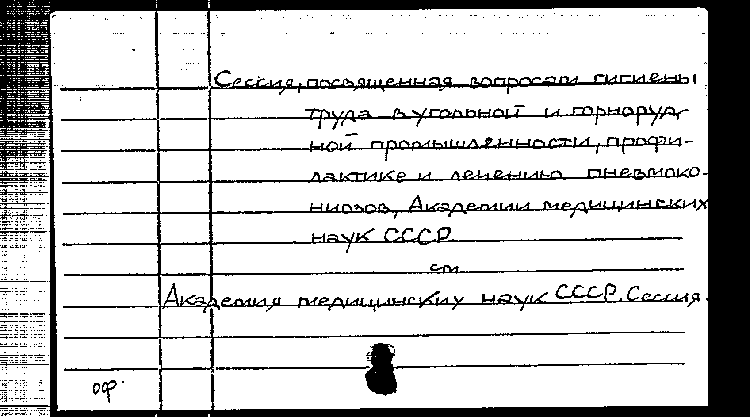 Сессия, посвященная вопросам гигиены
труда в угольной и горноруд-
ной промышленности, профи-
лактике и лечению пневмоко-
ниозов, Академии медицинских
наук СССР
см
Академия медицинских наук СССР. Сессия.
оф.